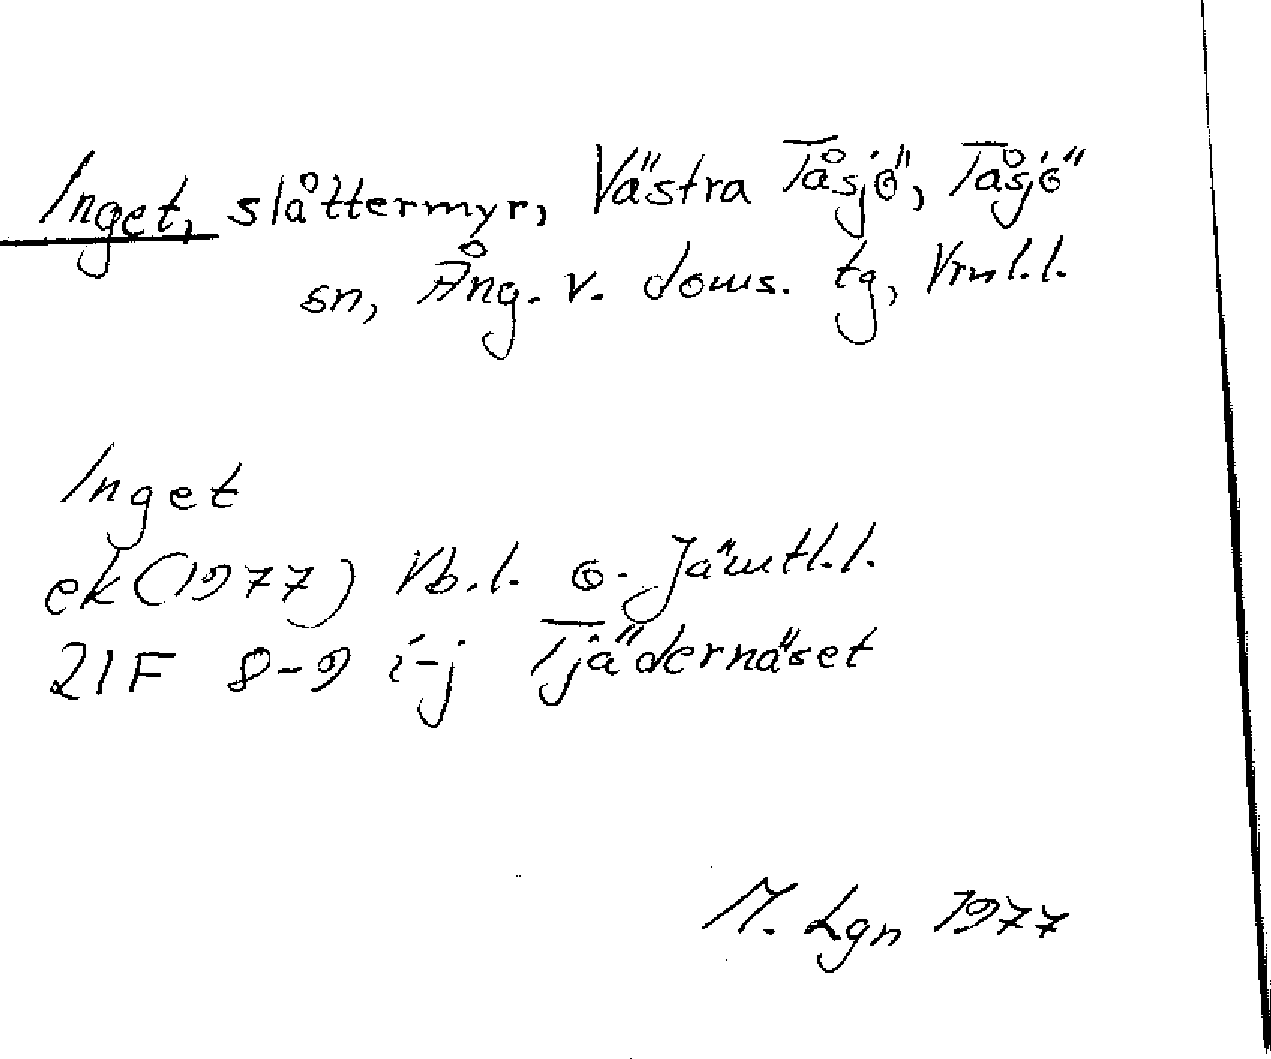 Inget, slåttermyr, Västra Tåsjö, Tåsjö
sn, Ång. v. doms. tg, Vrnl.l.
Inget
ek (1977) Vb.l. o. Jämtl.l.
21F 8-9 i-j Tjädernäset
M. Lgn 1977